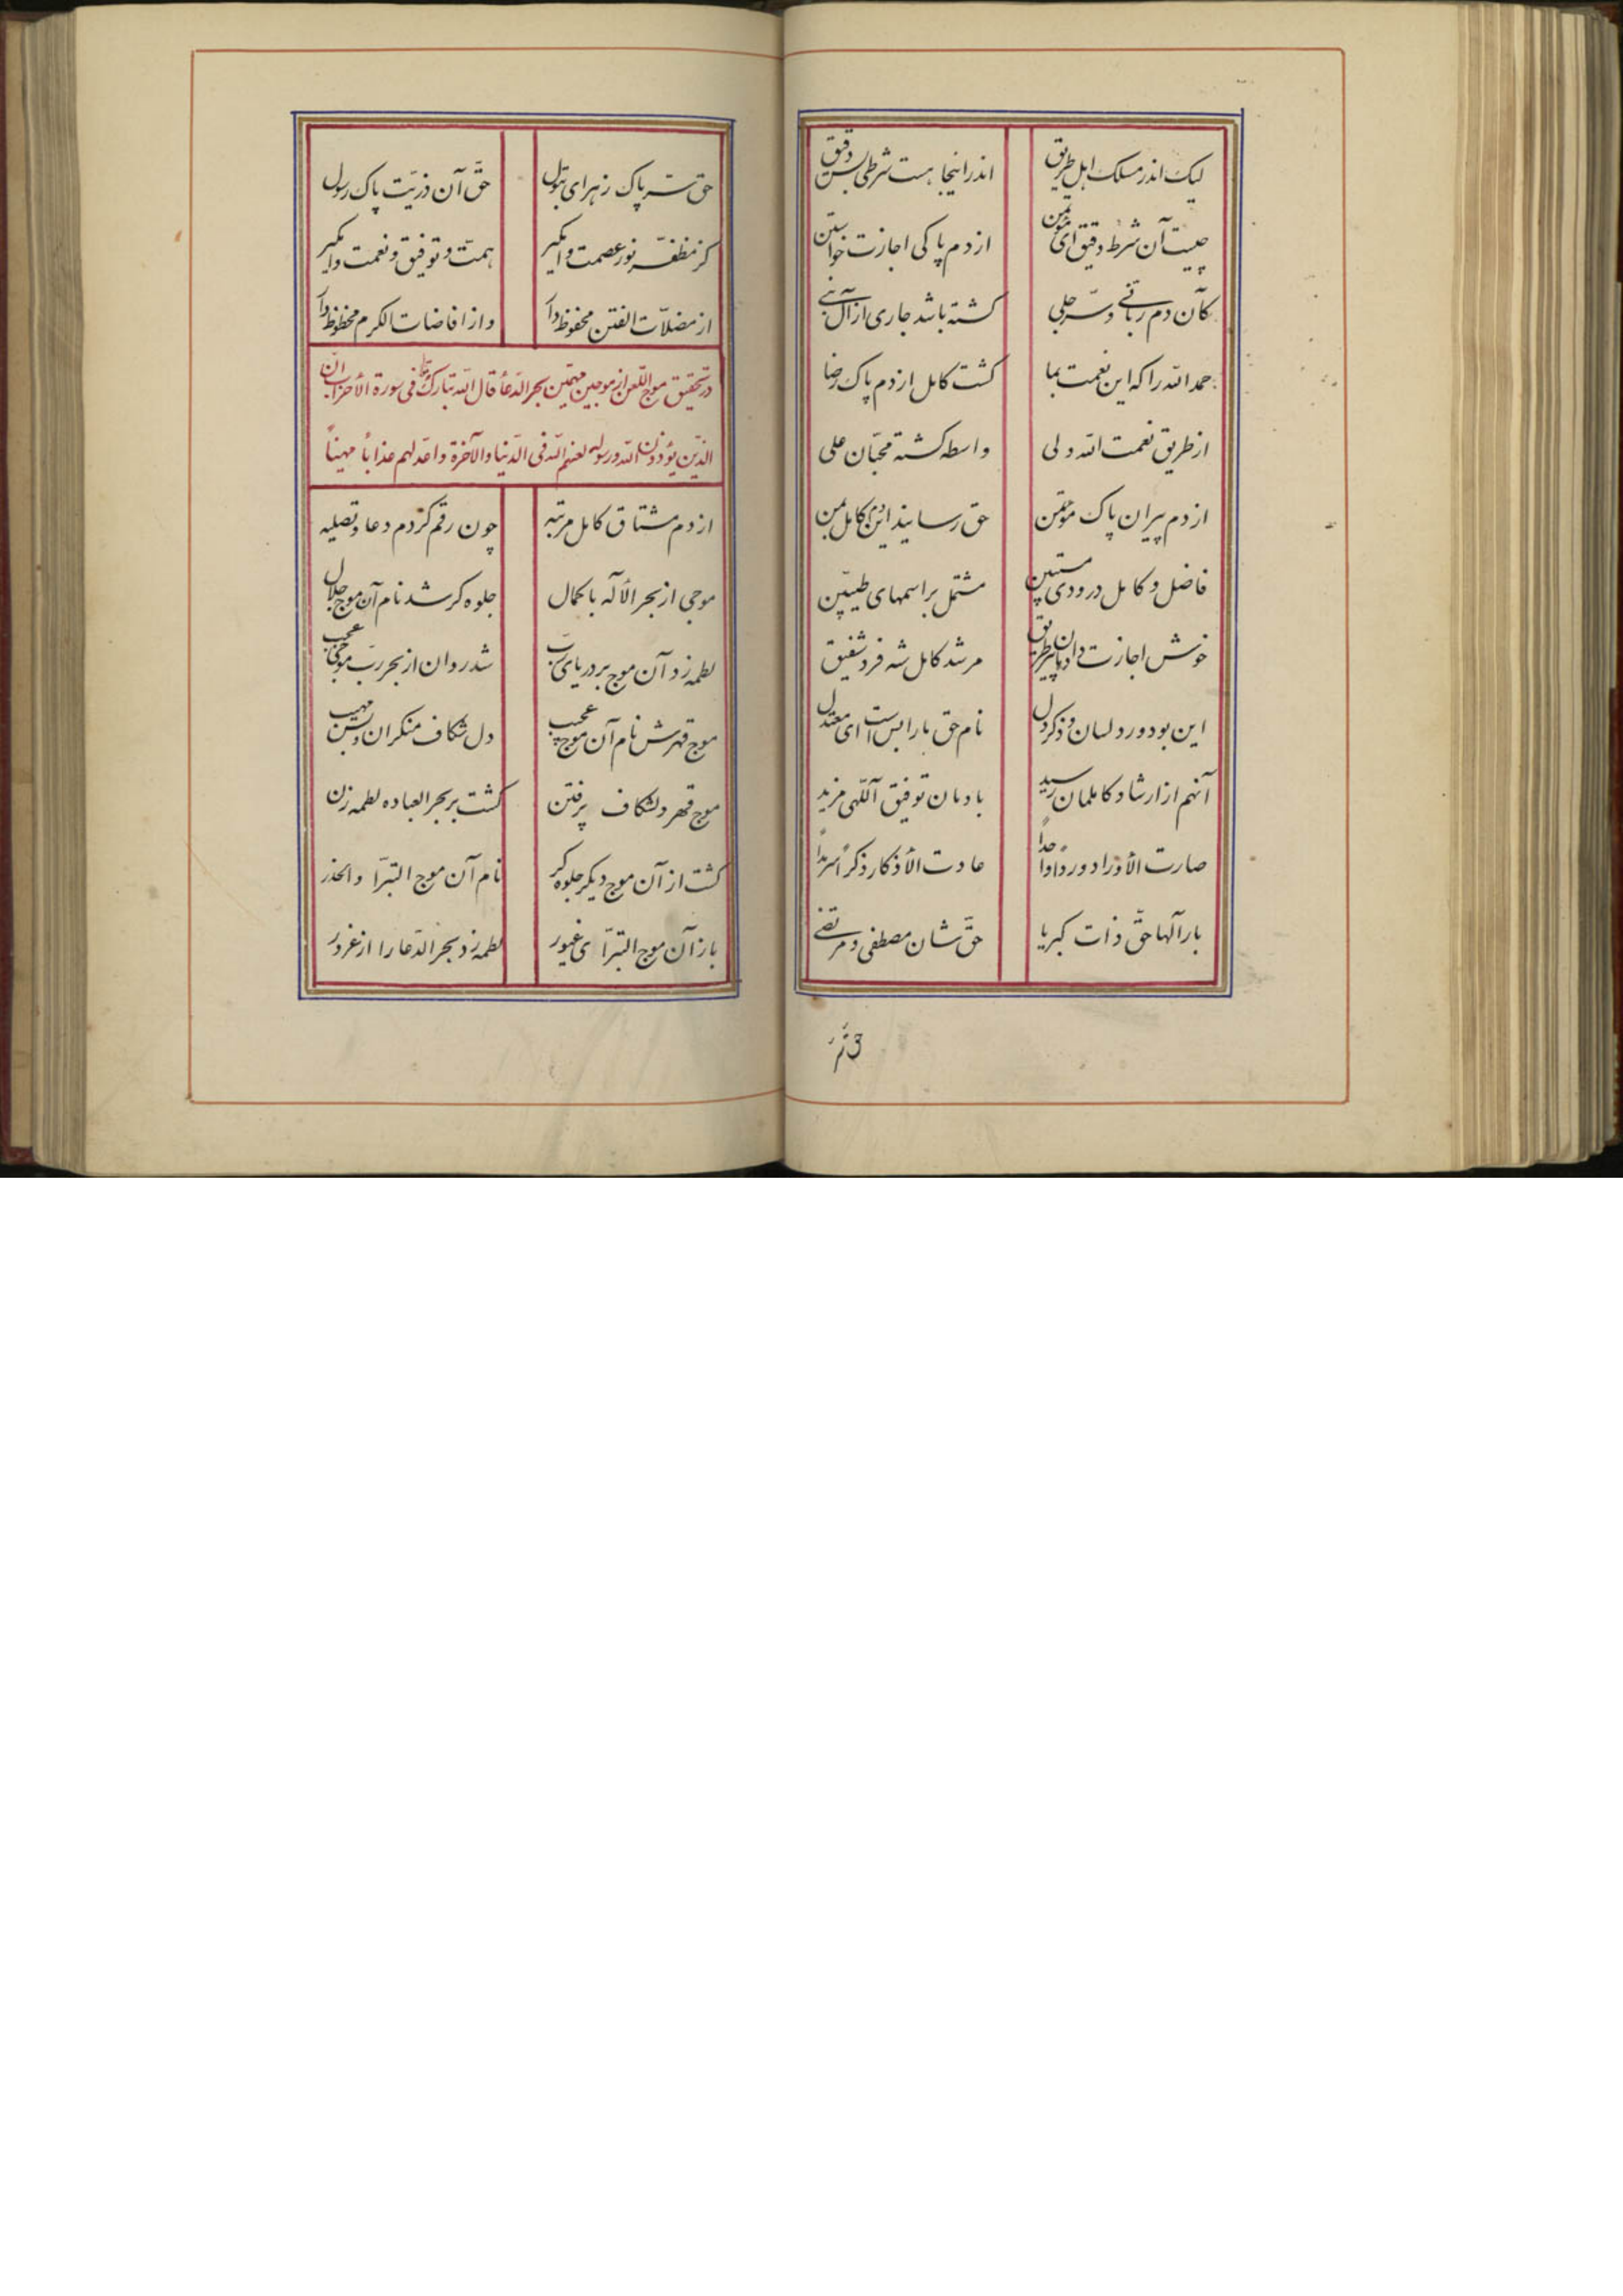 لیک اندر مسلک اهل طریق اندر اینجا هست شرطی بس دقیق
چیست آن شرط دقیق ای از دم پاکی اجازت خواستن
کآن دم ربانی و سرّ جلی کشته باشد جاری از آل نبی
حمد الله را که این نعمت بما کشت کامل از دم پاک رضا
از طریق نعمت الله ولی واسطه کشته محبّان علی
از دم پیران پاک مؤتمن حق رسانید این کامل بمن
فاضل و کامل درودی مستبین مشتمل بر اسمهای طیّبین
خوش اجازت دادمان پیر طریق مرشد کامل شه فرد شفیق
این بود ورد لسان و ذکر دل نام حق ما را بس است ای معتدل
آنهم از ارشاد کاملمان رسید بادمان توفیق آللهی مزید
صارت الأوراد ورداً واحداً عادت الأذکار ذکراً سرمداً
بارآلها حقّ ذات کبریا حقّ شان مصطفی و مرتضی
حق
حق سرّ پاک زهرای بتول حقّ آن ذریّت پاک رسول
کز مظفّر نور عصمت وامکیر همّت و توفیق و نعمت وامکیر
از مضلّات الفتن محفوظ دار واز افاضات الکرم محظوظ دار
در تحقیق موج اللّعن از موجین مهمّین بحر الدّعأ قال الله تبارک فی سورة الأحزاب انّ
الذّین یؤذون الله ورسوله لعنهم الله فی الدّنیا والآخرة واعدّ لهم عذاباً مهیناً
از دم مشتاق کامل مرتبه چون رقم کردم دعا و تصلیه
موجی از بحر الأله با کمال جلوه کر شد نام آن موج جلال
لطمه زد آن موج بر دریای ربّ شد روان از بحر ربّ موجی عجب
موج قهرش نام آن موج عجیب دل شکاف منکران و بس مهیب
موج قهر دلشکاف پرفتن کشت بر بحر العباده لطمه زن
کشت از آن موج دیکر جلوه کر نام آن موج التبرّا والحذر
باز آن موج التبرّا ی غیور لطمه زد بحر الدّعا را از غرور